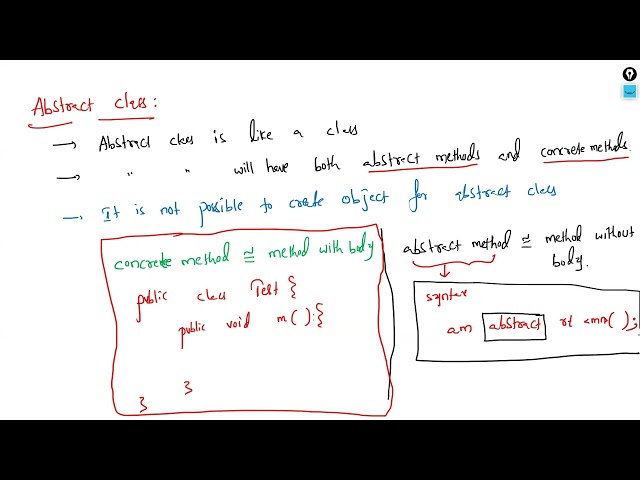 Abstract class:
→ Abstract class is like a class
→ " " will have both abstract methods and concrete methods.
→ It is not possible to create object for abstract class
concrete method ≅ method with body
public class Test {
public void m( ) {
}
}
abstract method ≅ method without
body.
syntax
am abstract rt <mn>( );